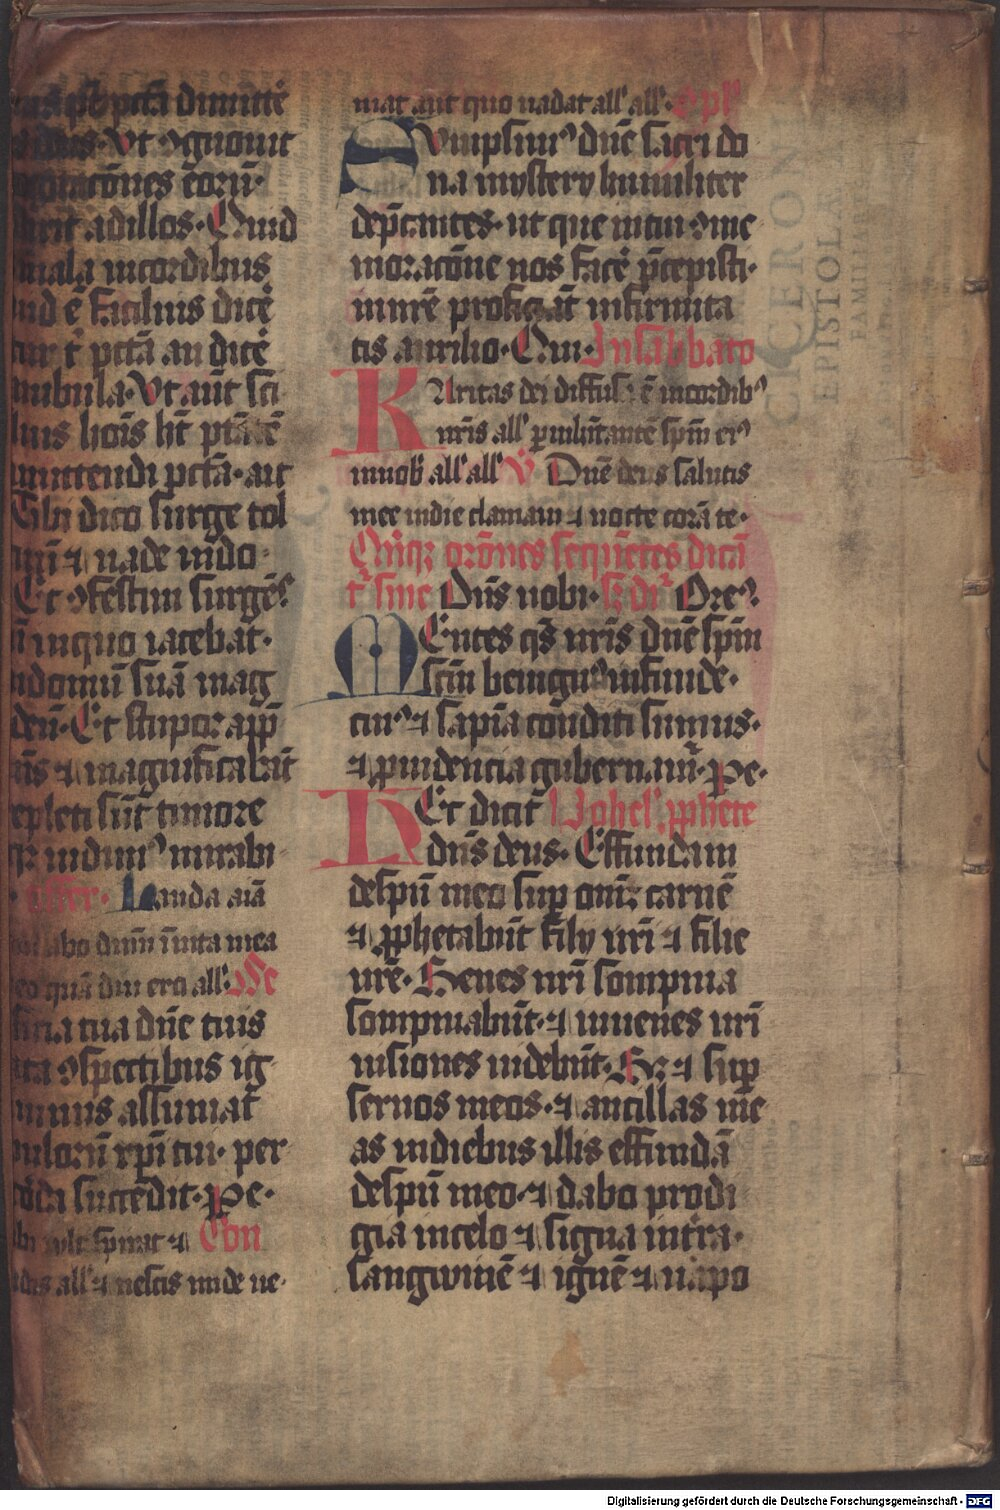 dimitte
Ut ꝯgnouit
eorū·
dixit ad illos· Quid
mala in cordibus
id ē facilius dicē
tur t̉ pctā an dicē
ambula· Ut aūt sci
lius hoīs ht̄ ptātē
mittendi pctā· ait
Tibi dico surge tol
tuū ⁊ uade in do
Et ꝯfestim surgēs
in quo iacebat·
in domū suā mag
deū· Et stupor app
⁊ magnificabāt
repleti sūt timore
mirabi
offer· Lauda aīā
labo dnm in uita mea
eo quādiu ero all· Se
tua dn̄e tuis
ꝯspectibus ig
assumat
xpi tui· per
succedit· pe·
ubi uult spirat ⁊ Con
all ⁊ nescis unde ue·
niat aut quo uadat all all· Spl
umpsim⁹ dn̄e sacri do
na mystery humiliter
dep̄cantes· ut que in tui ꝯme
moracōne nos facē p̄cepisti·
nire proficiat infirmita
tis auxilio· Qui· In sabbato
KAritas dei diffusa ē in cordib⁹
nr̄is all p inhītantē spm̄ ei⁹
in nob all all V̉ Dn̄e deus salutis
mee in die clamaui ⁊ nocte corā te·
Quīqꝫ orōnes sequētes dicū
t̉ sine Dn̄s nobi· sꝫ di Ore⁹·
MEntes qs̄ nr̄is dn̄e spm̄
scm̄ benign⁹ infunde·
cui⁹ ⁊ sapīa conditi sumus·
⁊ puidencia gubernam̉· pe·
HEc dicit Iohel pphete
dn̄s deus· Effundam
de spū meo sup omꝫ carnē
⁊ pphetabūt filij uri ⁊ filie
ure· Senes uri sompnia
sompniabūt· ⁊ iuuenes uri
uisiones uidebūt· Sꝫ ⁊ sup
seruos meos· ⁊ ancillas me
as in diebus illis effundā
de spū meo· ⁊ dabo prodi
gia in celo ⁊ signa in tra·
sangwinē ⁊ ignē ⁊ uapo
CICERONI
EPISTOLÆ
FAMILIARES
Digitalisierung gefördert durch die Deutsche Forschungsgemeinschaft - DFG